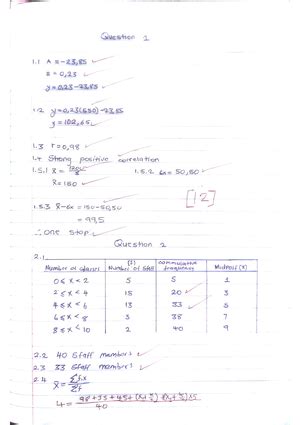 Question 1
1.1 A = -23,85
B = 0,23
y = 0.23 - 23.85
1.2 y = 0,23(550) - 23,85
y = 102,65
1.3 r = 0,98
1.4 Strong positive correlation
1.5.1 x̄ =
1.5.2 6x = 50,50
x̄ = 150
[12]
1.5.3 x̄ - 6x = 150 - 50,50
= 99,5
∴ one stop
Question 2
2.1
Number of (f) Number of Staff frequency Midpoint (x)
0 ≤ x < 2 5 5 1
2 ≤ x < 4 15 20 3
4 ≤ x < 6 13 33 5
6 ≤ x < 8 5 38 7
8 ≤ x < 10 2 40 9
2.2 40 Staff members
2.3 33 Staff members
2.4 x̄ = Σf.x / Σf
40